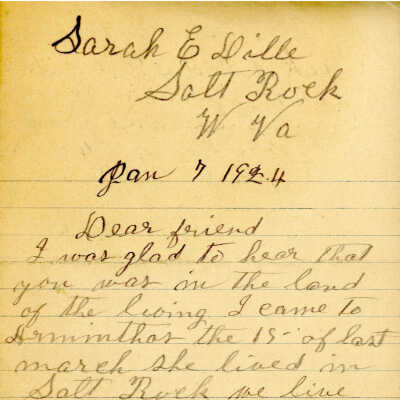 Sarah E Dille
Salt Rock
W Va
Jan 7 1924
Dear friend
I was glad to hear that
you was in the land
of the living I came to
Arminthas the 15 of last
march she lived in
Salt Rock we live